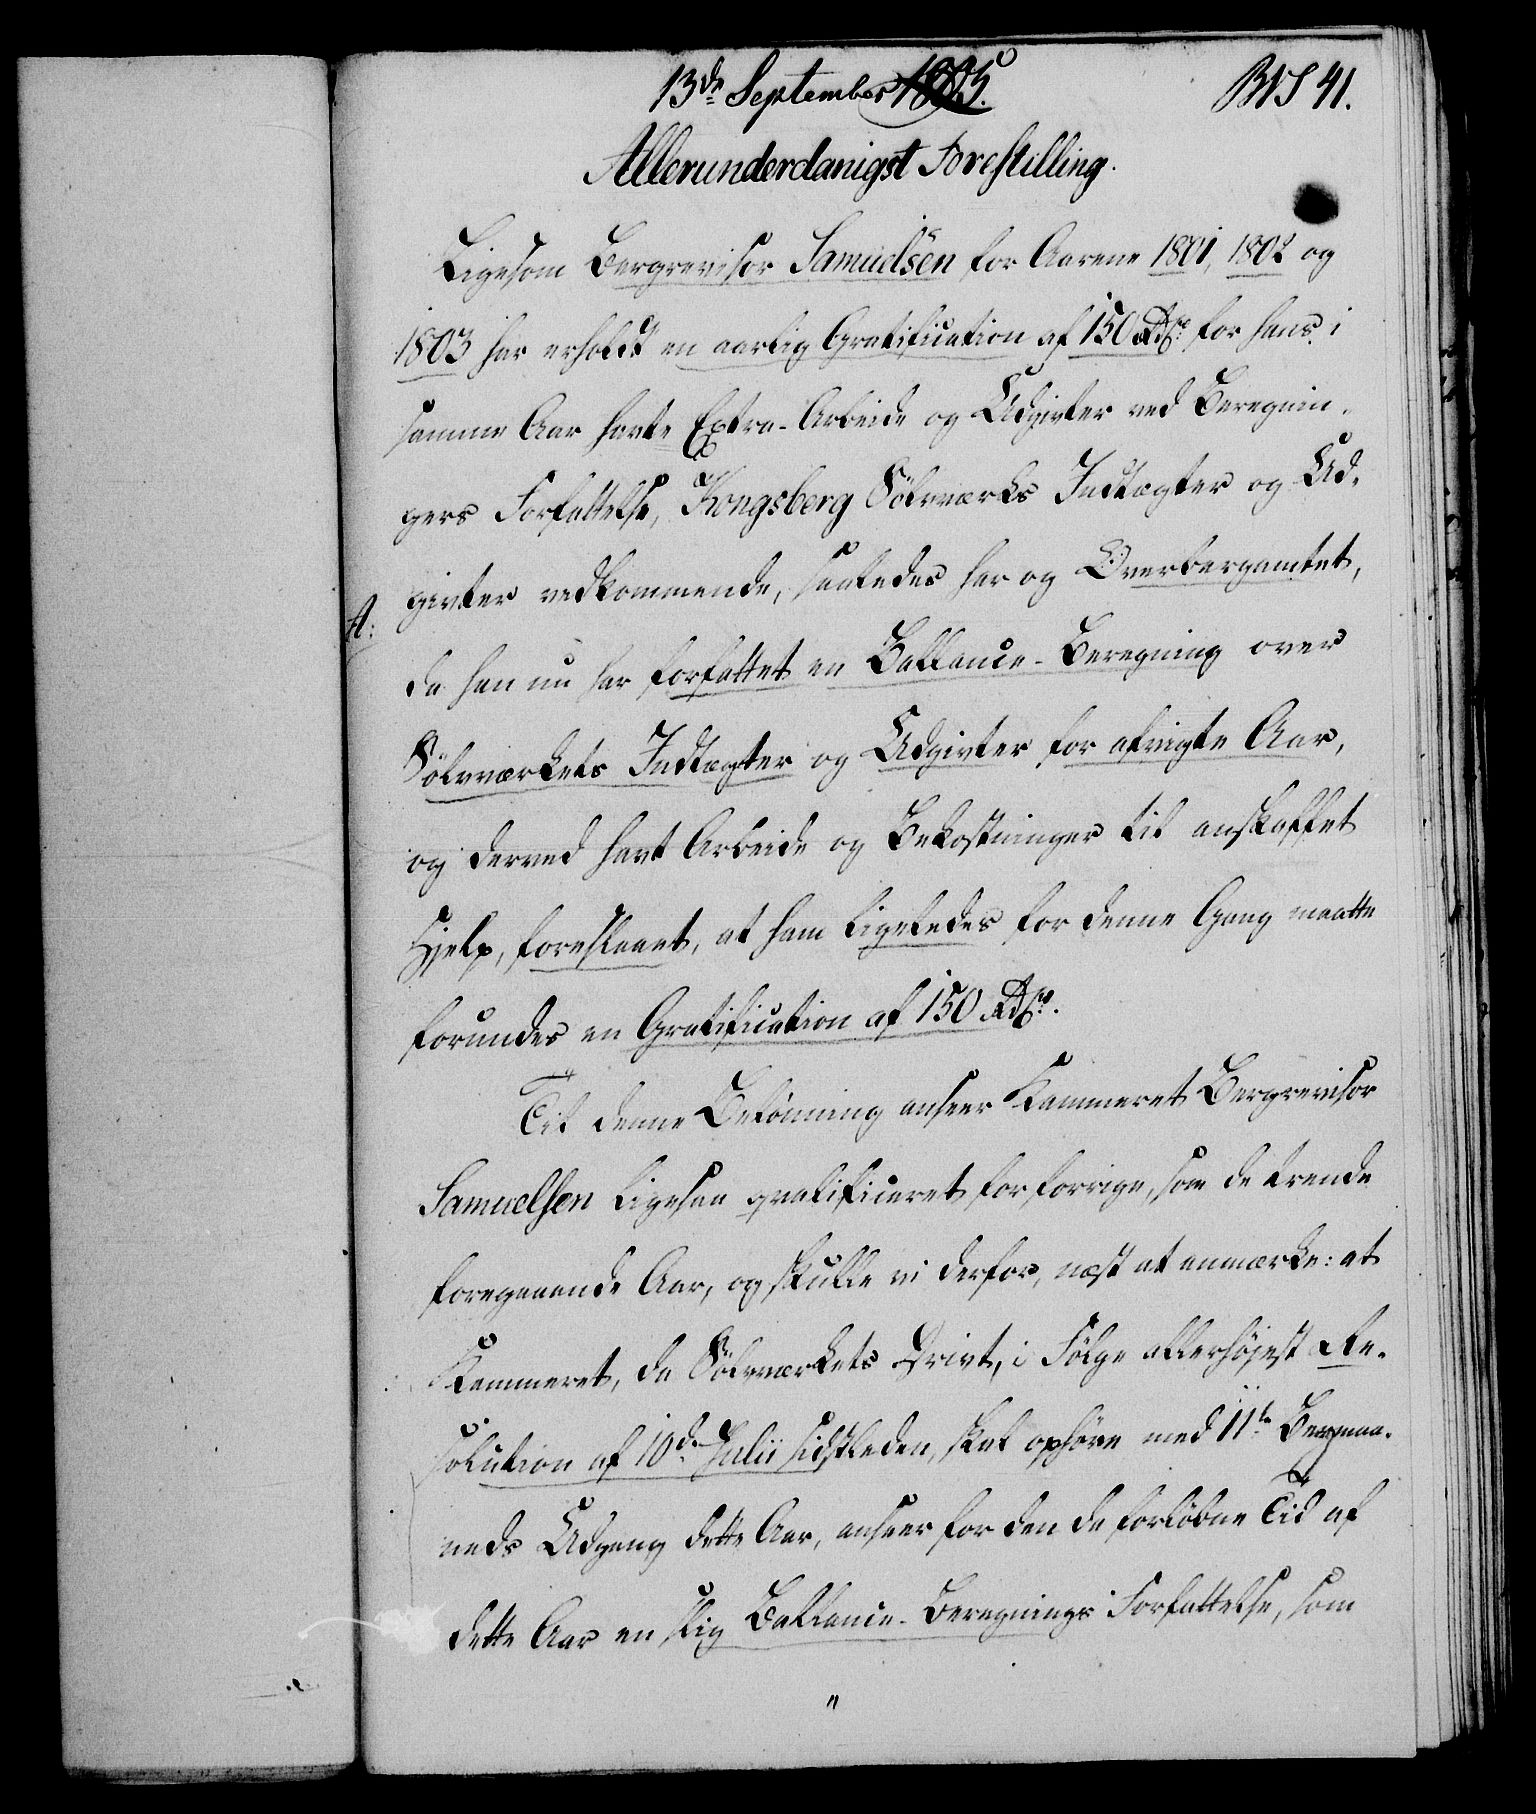 13de September 1805.
BNS 41.
Allerunderdanigst Forestilling.
Ligesom Bergrevisor Samuelsen for Aarene 1801, 1802 og
1803 har erholdt en aarlig Gratification af 150 Rdr. for hans i
samme Aar havte Extra-Arbeide og Udgivter ved Beregnin-
gers Forfattelse, Kongsberg Sölvværks Indtægter og Ud-
givter vedkommende, saaledes har og Overbergamtet,
A:
da han nu har forfattet en Ballance-Beregning over
Sölvværkets Indtægter og Udgivter for afvigte Aar,
og derved havt Arbeide og Bekostninger til anskaffet
Hjelp, foreslaaet, at ham ligeledes for denne Gang maatte
forundes en Gratification af 150 Rdr.
Til denne Belönning anseer Kammeret Bergrevisor
Samuelsen ligesaa qvalificeret for forrige, som de trende
foregaaende Aar, og skulle vi derfor, næst at anmærke: at
Kammeret, da Sölvværkets Drivt, i Fölge allerhöjest Re-
solution af 10de Julii sidstleden, skal ophöre med 11te Bergmaa-
neds Udgang dette Aar, anseer for den da forlöbne Tid af
dette Aar en slig Ballance-Beregnings Forfattelse, som
"